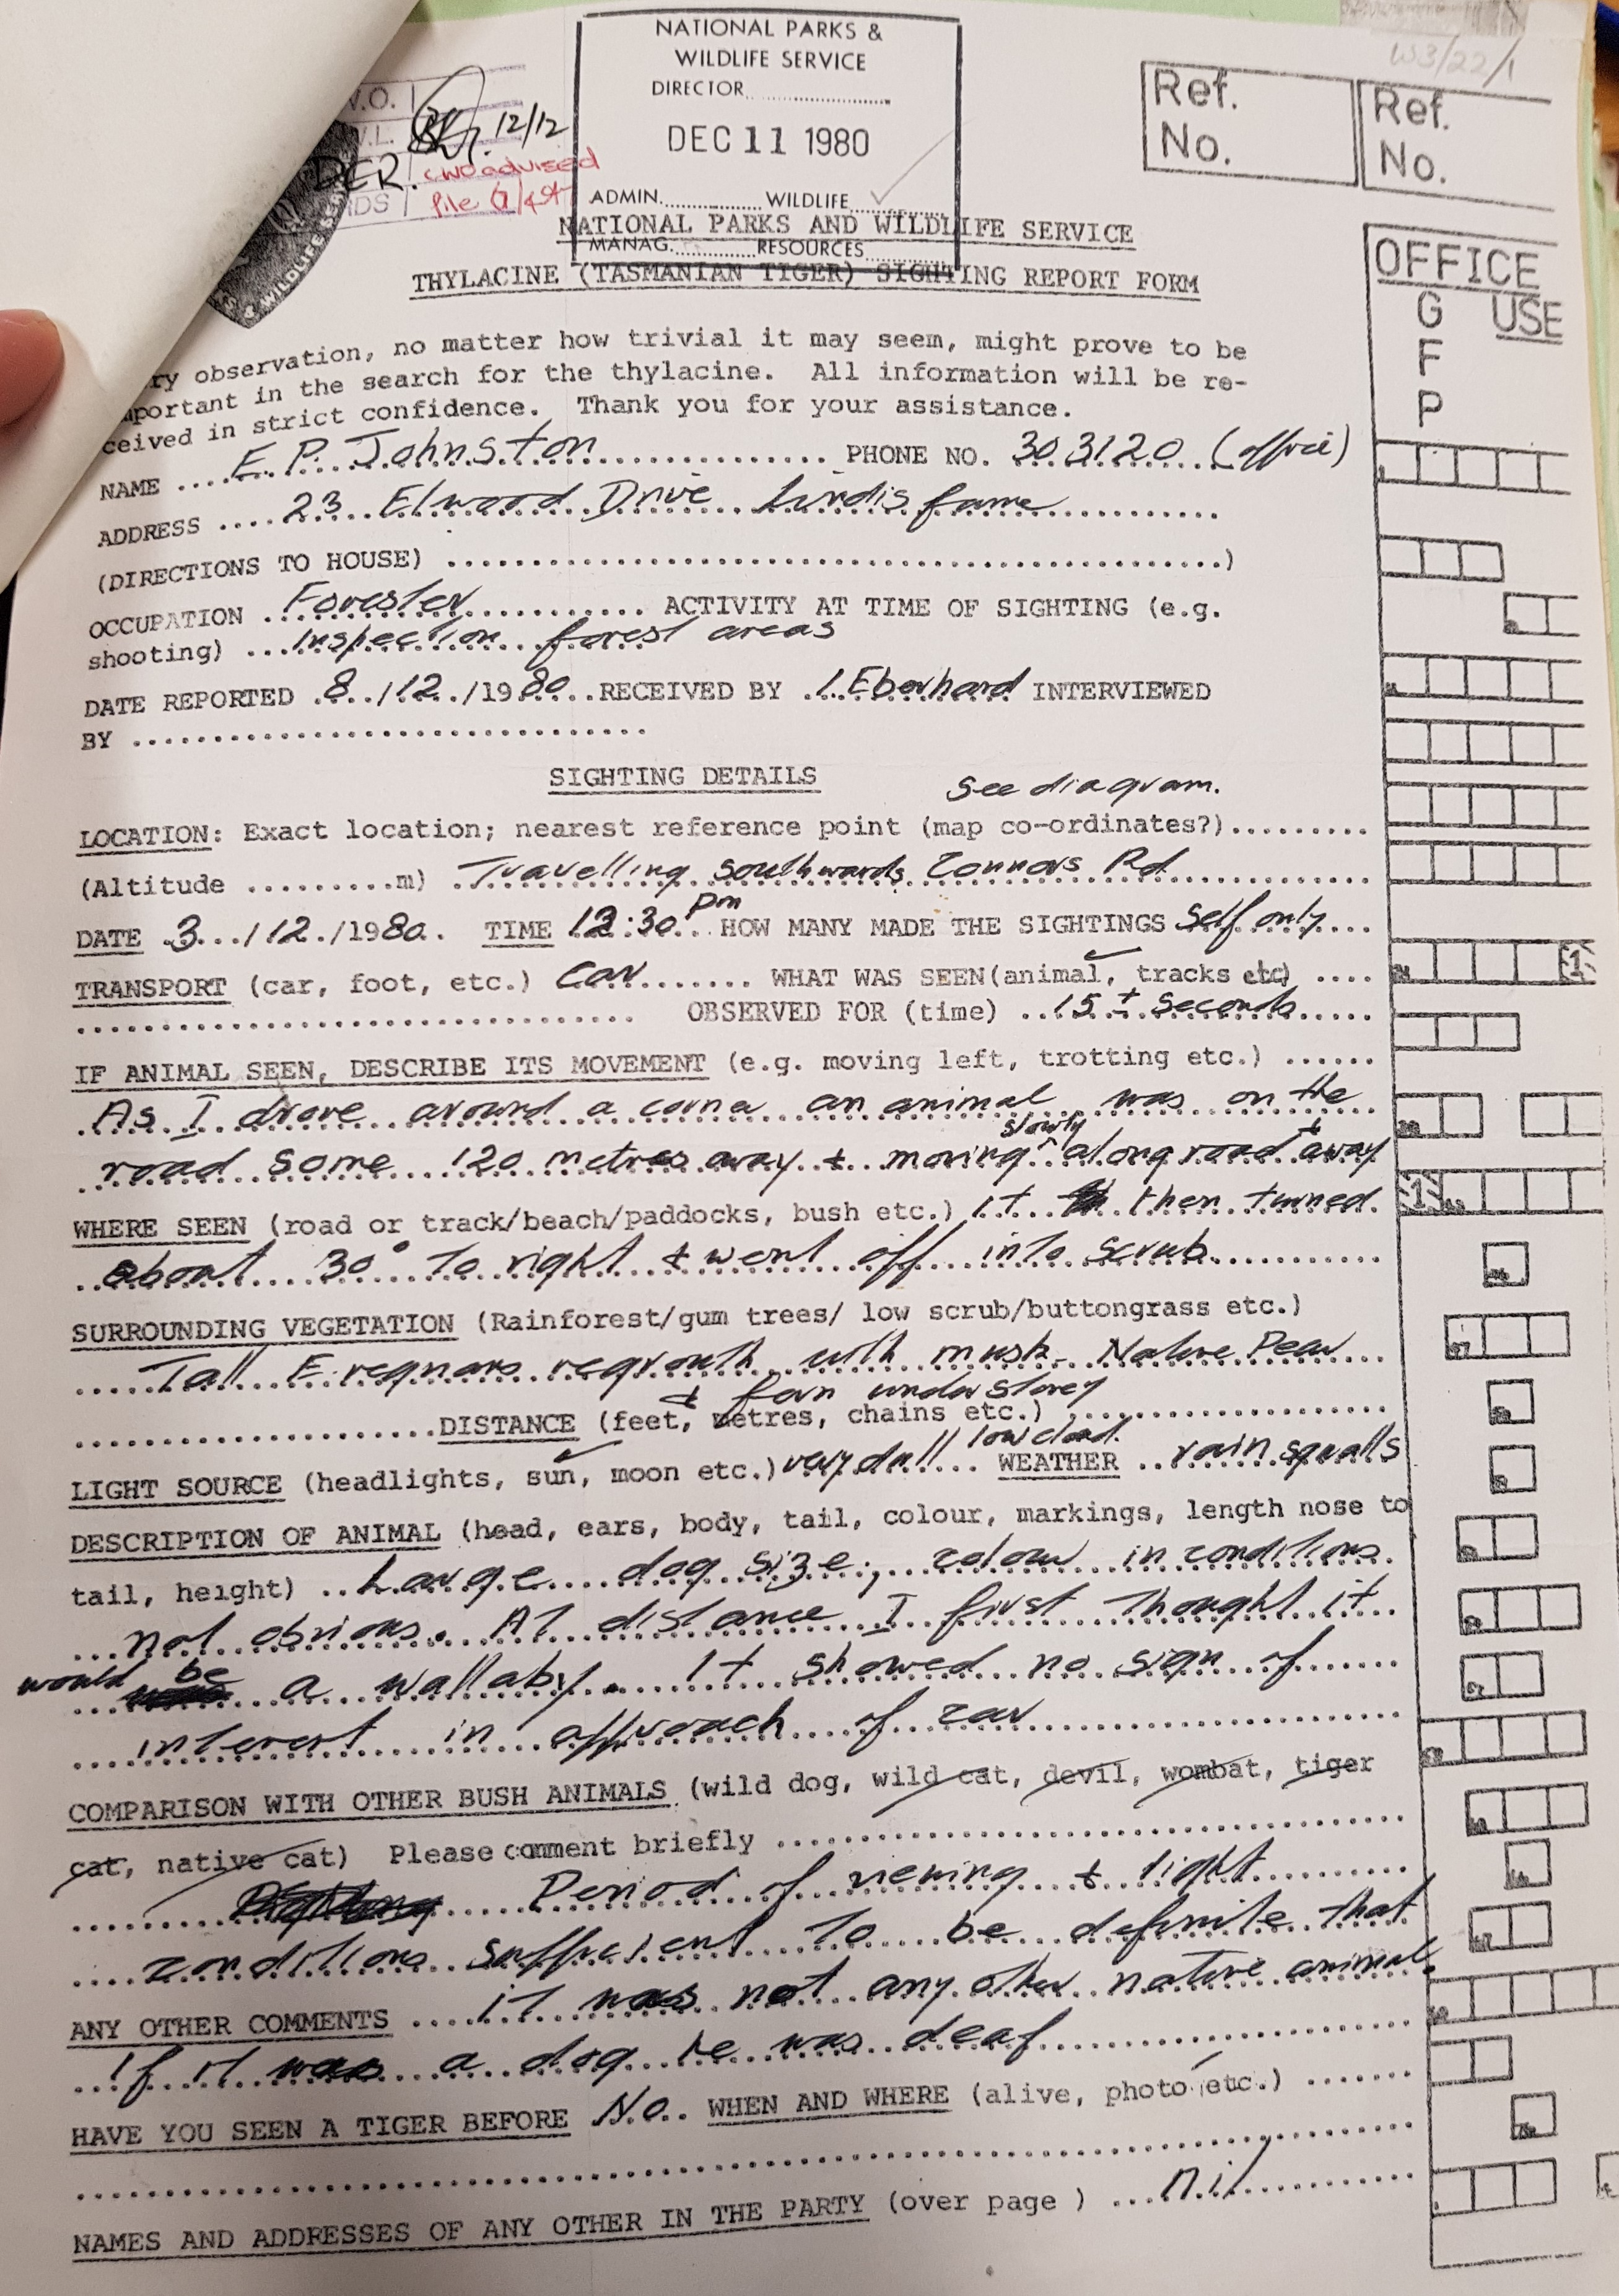 W3/22/1
NATIONAL PARKS &
WILDLIFE SERVICE
DIRECTOR..................
DEC 11 1980
ADMIN............... WILDLIFE...............
MANAG............RESOURCES............
W.O.
12/12
DER. CWO advised
file
Ref. No.
Ref. No.
NATIONAL PARKS AND WILDLIFE SERVICE
THYLACINE (TASMANIAN TIGER) SIGHTING REPORT FORM
OFFICE USE
G
F
P
ry observation, no matter how trivial it may seem, might prove to be
mportant in the search for the thylacine. All information will be re-
ceived in strict confidence. Thank you for your assistance.
NAME .... E. P. Johnston ............ PHONE NO. 303120 (office)
ADDRESS .... 23 Elwood Drive Lindisfarne ............
(DIRECTIONS TO HOUSE) ........................................)
OCCUPATION . Forester ............ ACTIVITY AT TIME OF SIGHTING (e.g.
shooting) ... Inspection forest areas
DATE REPORTED .8../12./1980..RECEIVED BY .I. Eberhard INTERVIEWED
BY ................................
SIGHTING DETAILS
See diagram.
LOCATION: Exact location; nearest reference point (map co-ordinates?).........
(Altitude .........m) . Travelling Southwards Connors Rd ............
DATE .3.../12./1980. TIME 12:30 pm HOW MANY MADE THE SIGHTINGS Self only....
TRANSPORT (car, foot, etc.) Car....... WHAT WAS SEEN(animal, tracks etc) ....
................................ OBSERVED FOR (time) ..15 ± Seconds.....
IF ANIMAL SEEN, DESCRIBE ITS MOVEMENT (e.g. moving left, trotting etc.) ......
As I drove around a corner an animal was on the
road some 120 metres away + moving slowly along road + away
WHERE SEEN (road or track/beach/paddocks, bush etc.) It then turned.
about 30° to right + went off into scrub............
SURROUNDING VEGETATION (Rainforest/gum trees/ low scrub/buttongrass etc.)
..... Tall E. regnans regrowth with musk - Native Pear ...
+ fern understorey
......................DISTANCE (feet, metres, chains etc.) ....................
LIGHT SOURCE (headlights, sun, moon etc.) very dull low cloud. WEATHER .. rain squalls
DESCRIPTION OF ANIMAL (head, ears, body, tail, colour, markings, length nose to
tail, height) .. Large dog size; colour in conditions.
... not obvious. At distance I first thought it..
would be a wallaby. It showed no sign of ......
.... interest in approach of car ....................
COMPARISON WITH OTHER BUSH ANIMALS (wild dog, wild cat, devil, wombat, tiger
cat, native cat) Please comment briefly ........................................
Period of viewing + light ........
.... conditions sufficient to be definite that
ANY OTHER COMMENTS .... it was not any other native animal.
... If it was a dog he was deaf ....................
HAVE YOU SEEN A TIGER BEFORE No.. WHEN AND WHERE (alive, photo etc.) .......
................................................................
NAMES AND ADDRESSES OF ANY OTHER IN THE PARTY (over page ) ... nil ........